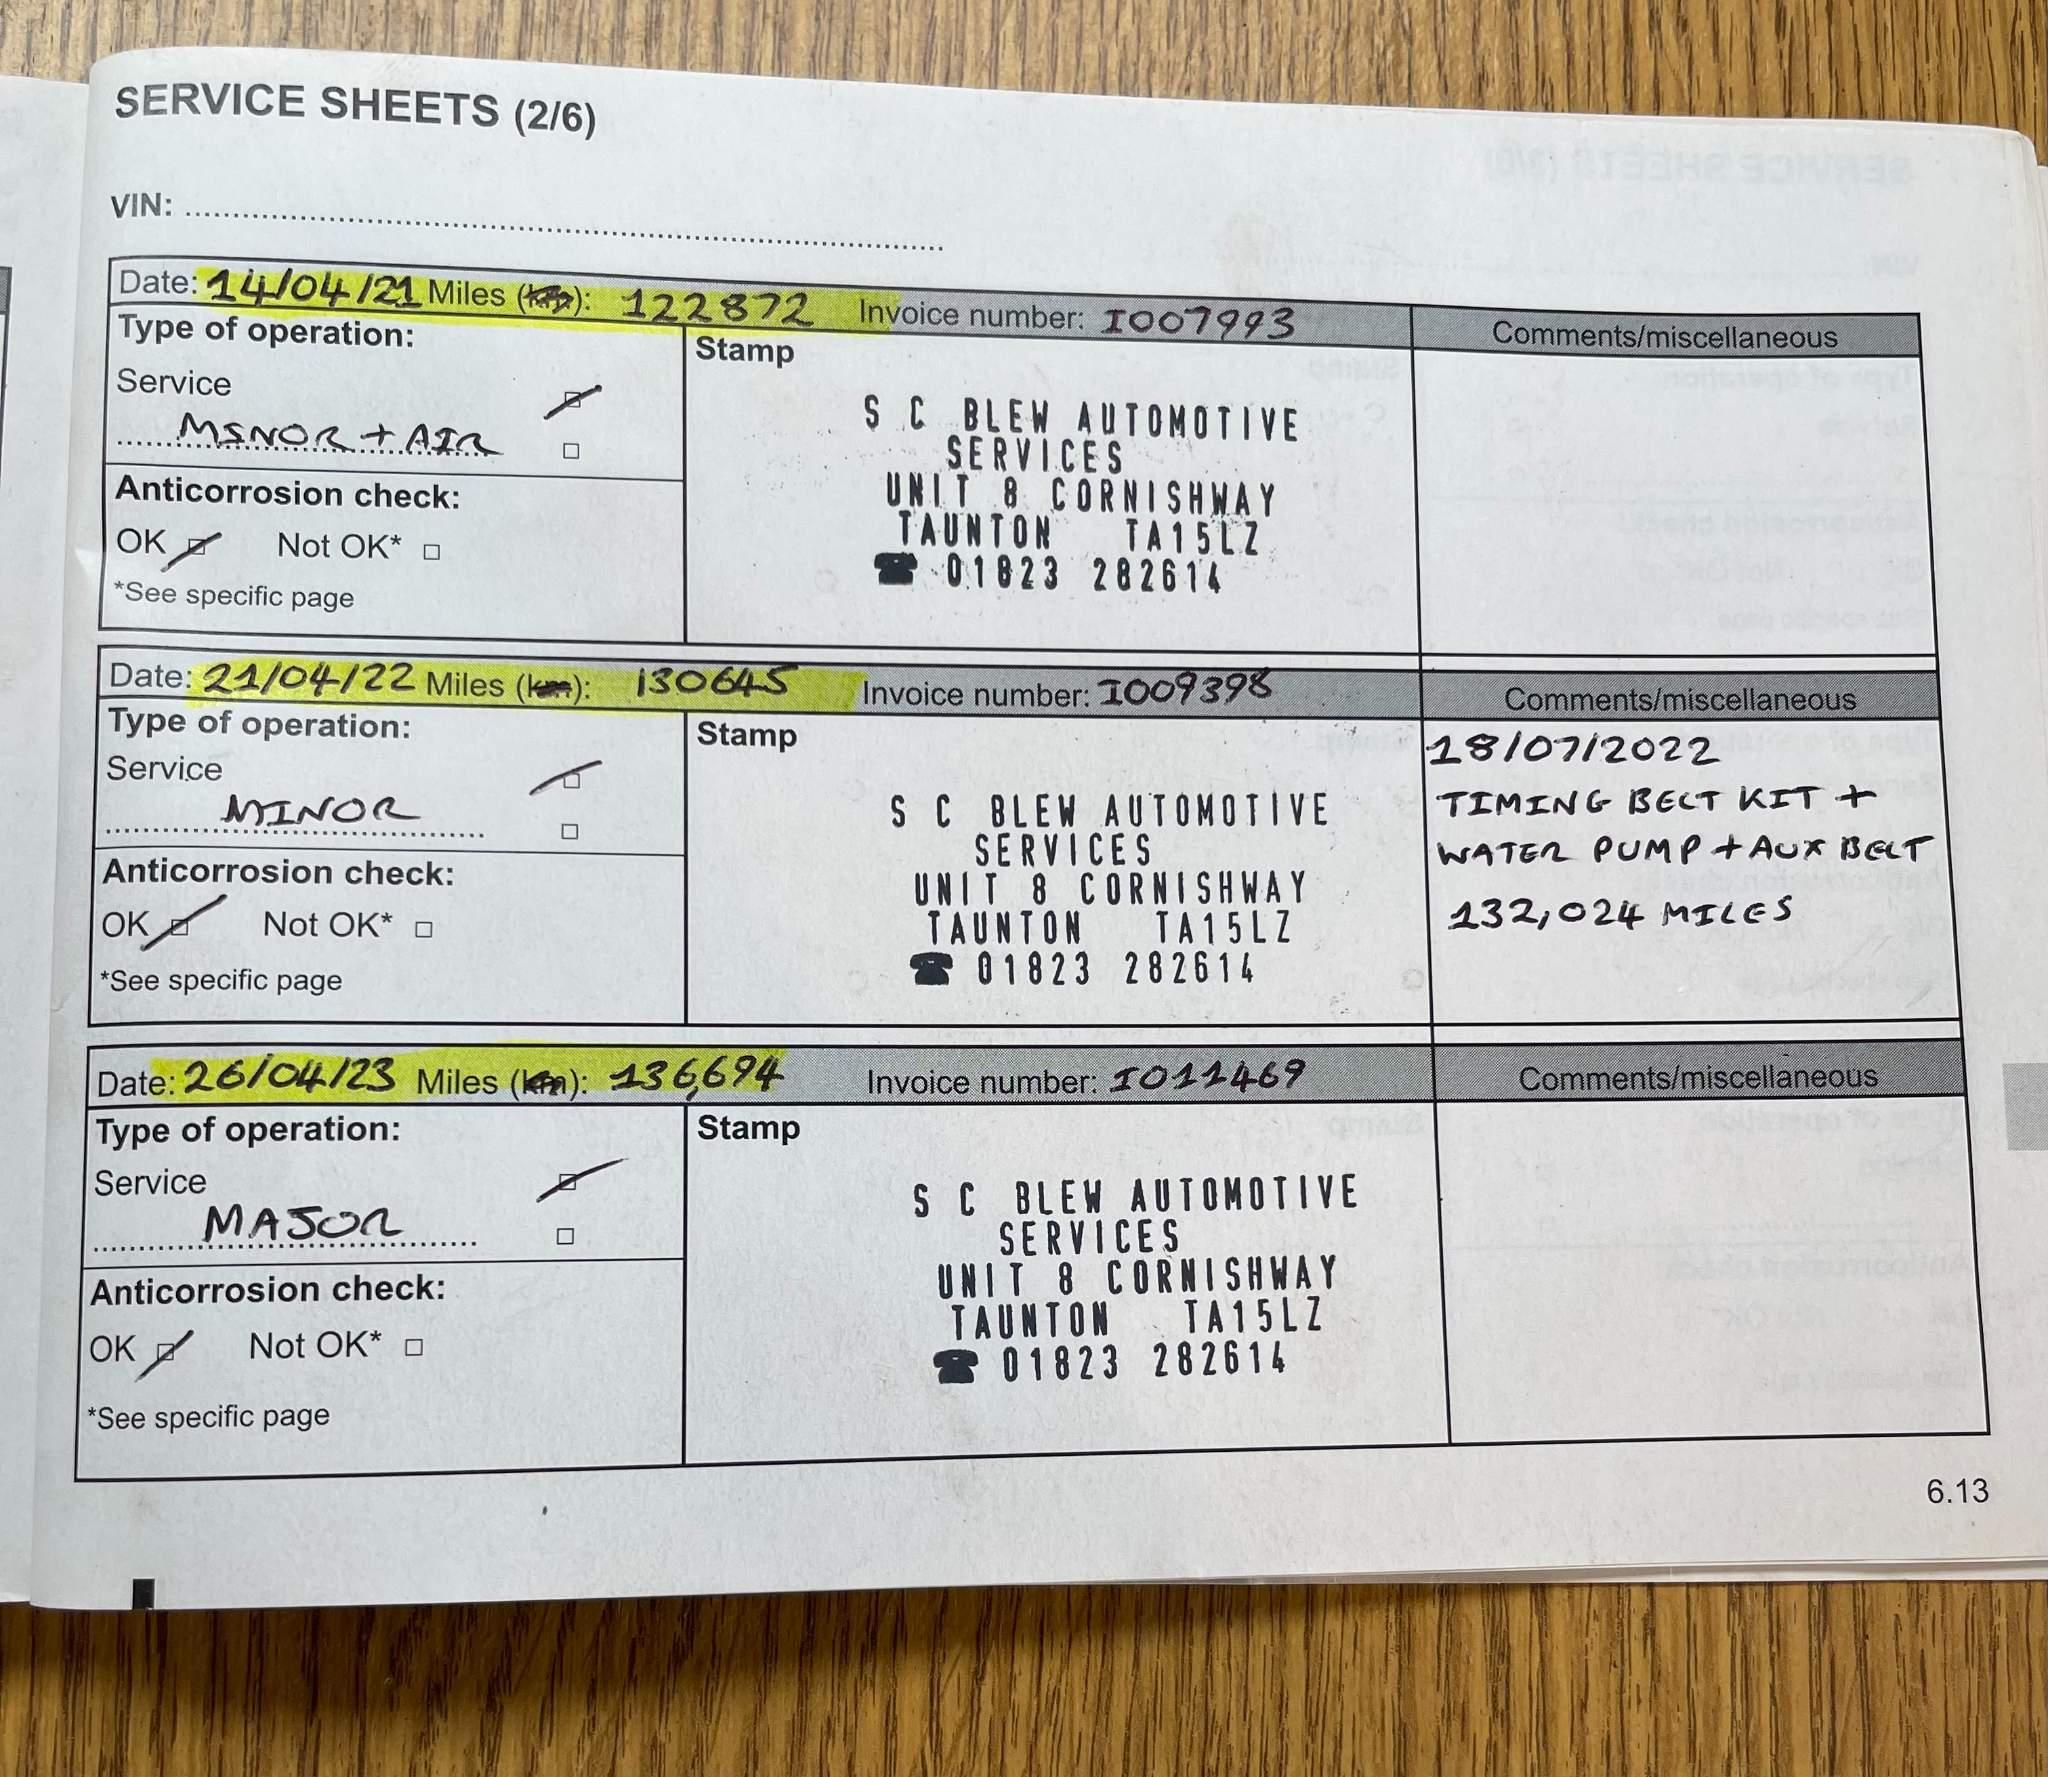 SERVICE SHEETS (2/6)
VIN:
Date: 14/04/21 Miles (km): 122872 Invoice number: I007993
Comments/miscellaneous
Type of operation:
Service
MINOR + AIR
Anticorrosion check:
OK Not OK*
*See specific page
Stamp
S C BLEW AUTOMOTIVE
SERVICES
UNIT 8 CORNISHWAY
TAUNTON TA15LZ
☎ 01823 282614
Date: 21/04/22 Miles (km): 130645 Invoice number: I009398
Comments/miscellaneous
Type of operation:
Service
MINOR
Anticorrosion check:
OK Not OK*
*See specific page
Stamp
S C BLEW AUTOMOTIVE
SERVICES
UNIT 8 CORNISHWAY
TAUNTON TA15LZ
☎ 01823 282614
18/07/2022
TIMING BELT KIT +
WATER PUMP + AUX BELT
132,024 MILES
Date: 26/04/23 Miles (km): 136,694 Invoice number: I011469
Comments/miscellaneous
Type of operation:
Service
MAJOR
Anticorrosion check:
OK Not OK*
*See specific page
Stamp
S C BLEW AUTOMOTIVE
SERVICES
UNIT 8 CORNISHWAY
TAUNTON TA15LZ
☎ 01823 282614
6.13